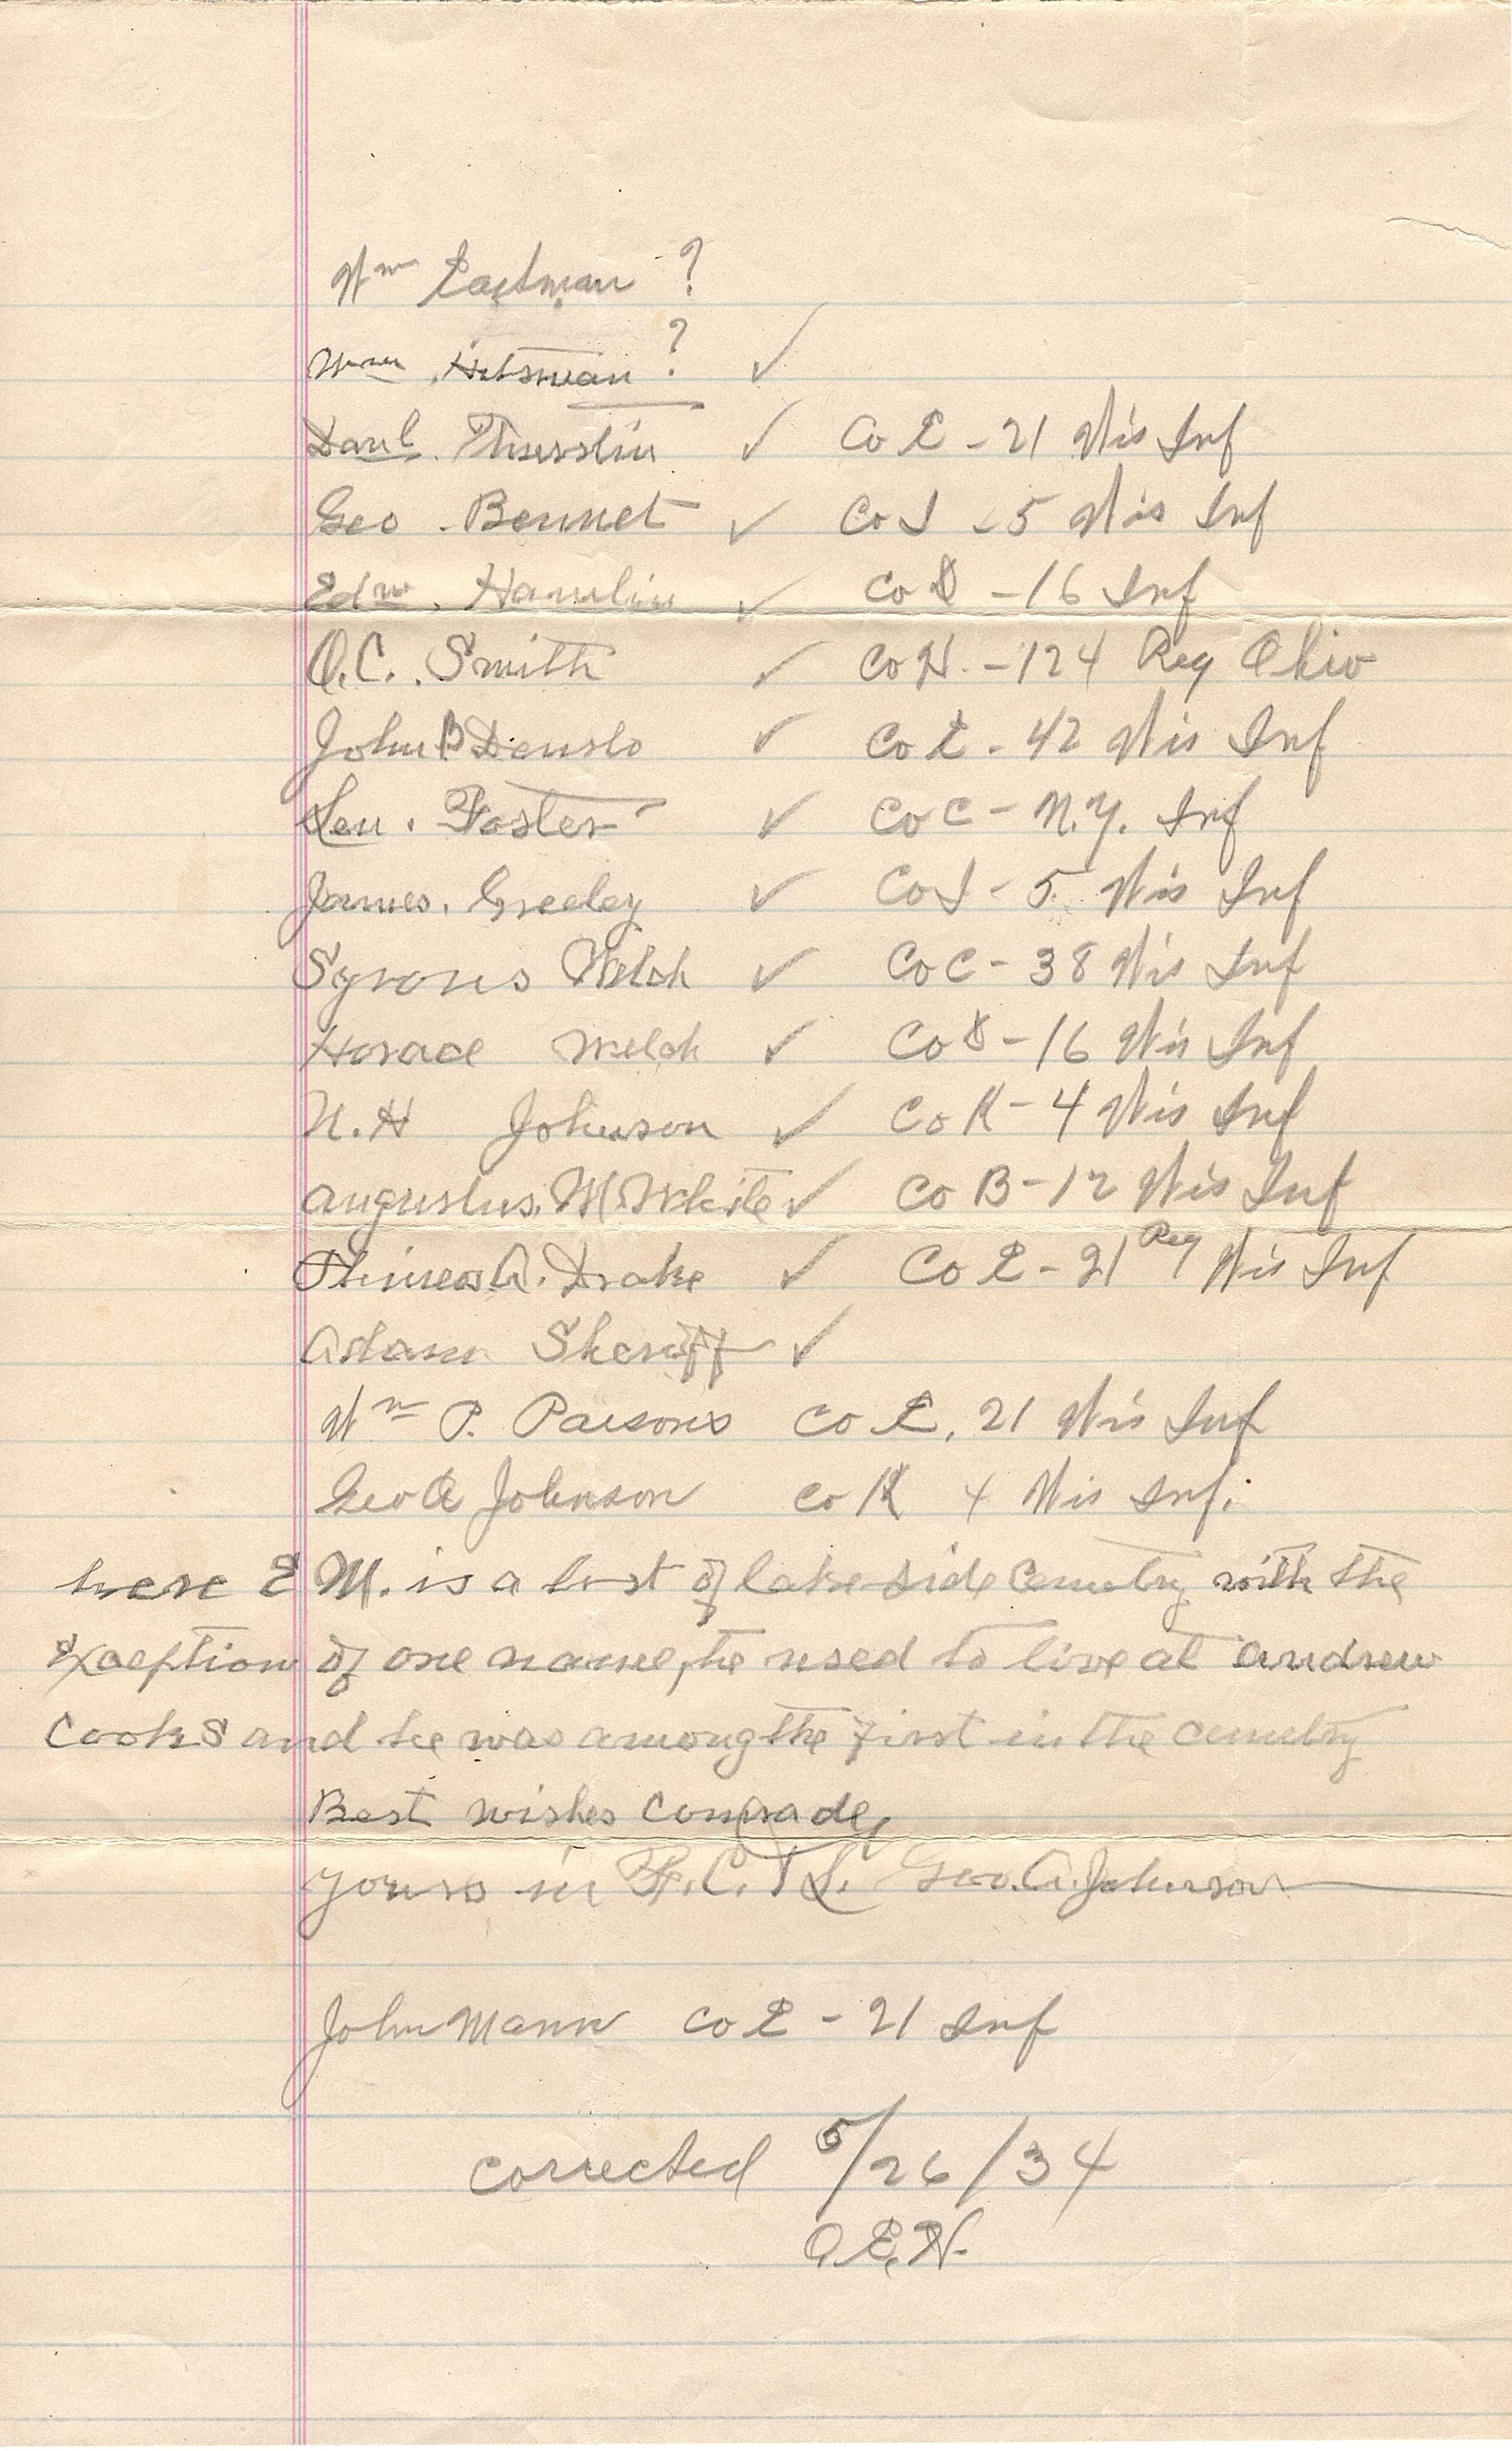 Wm Eastman ?
Wm. Hitsman ? ✓
Danl. Thurstin ✓ Co E - 21 Wis Inf
Geo. Bennet ✓ Co I - 5 Wis Inf
Edw. Hamlin ✓ Co D - 16 Inf
O.C. Smith ✓ Co H. - 124 Reg Ohio
John B Denslo ✓ Co E - 42 Wis Inf
Leu. Foster ✓ Co C - N.Y. Inf
James. Greeley ✓ Co I - 5 Wis Inf
Welch ✓ Co C - 38 Wis Inf
Horace Welch ✓ Co D - 16 Wis Inf
N.H Johnson ✓ Co K - 4 Wis Inf
Augustus. W. White ✓ Co B - 12 Wis Inf
A. Drake ✓ Co E - 21 Reg Wis Inf
Adam Sheriff ✓
Wm P. Parsons Co E, 21 Wis Inf
Geo A Johnson Co K 4 Wis Inf.
here E M. is a list of lake side cemetry with the
Exception of one name, he used to live at andrew
Cooks and he was among the first in the cemetry
Best wishes Comrade,
yours in F.C. & L. Geo. A. Johnson
John Mann Co E - 21 Inf
corrected 5/26/34
O.E.H.